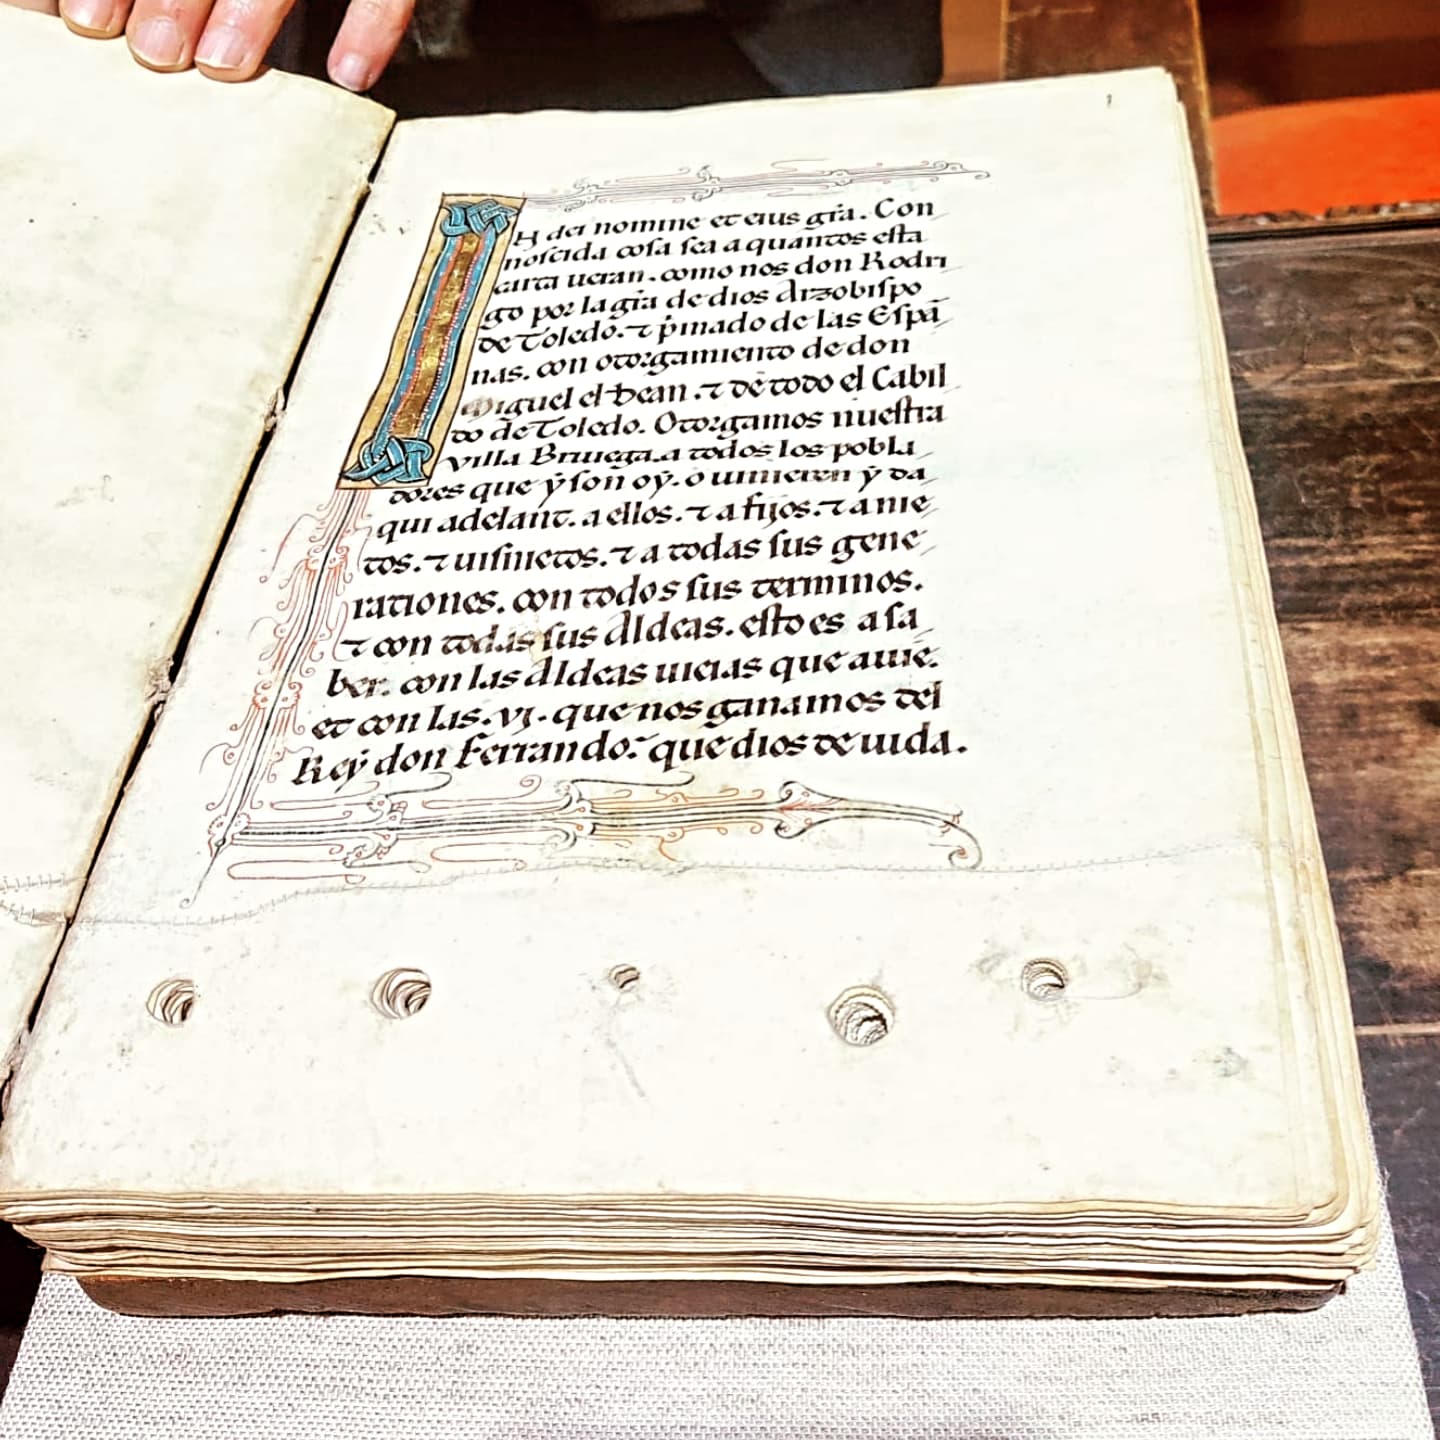 IN dei nomine et eius gr̃a. Con
noscida cosa sea a quantos esta
carta ueran. como nos don Rodri
go por la gr̃a de dios Arzobispo
de Toledo. ⁊ p̃mado de las Espã
nas. con otorgamiento de don
Miguel el Dean. ⁊ de todo el Cabil
do de Toledo. Otorgamos nuestra
villa Briuega. a todos los pobla
dores que ẏ son oẏ. o uinieren ẏ da
qui adelant. a ellos. ⁊ a fijos. ⁊ a nie
tos. ⁊ uisnietos. ⁊ a todas sus gene
rationes. con todos sus terminos.
⁊ con todas sus Aldeas. esto es a sa
ber. con las Aldeas uieias que auie.
et con las .vj. que nos ganamos del
Reẏ don Ferrando. que dios de uida.
1